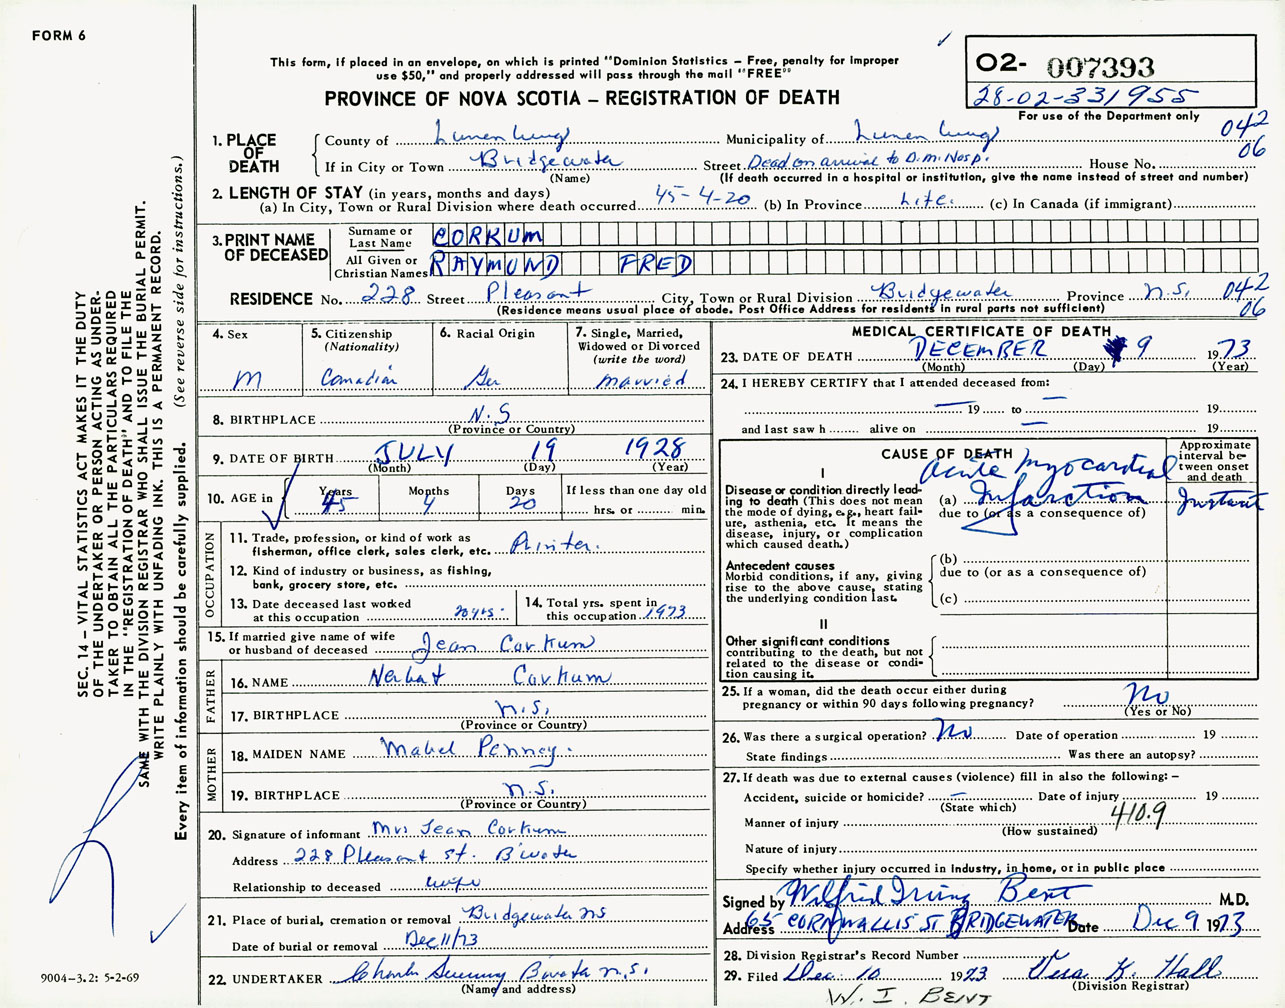 FORM 6
This form, if placed in an envelope, on which is printed "Dominion Statistics – Free, penalty for improper
use $50," and properly addressed will pass through the mail "FREE"
PROVINCE OF NOVA SCOTIA – REGISTRATION OF DEATH
02- 007393
28-02-331955
For use of the Department only
042
06
1. PLACE OF DEATH
County of Lunenburg Municipality of Lunenburg
If in City or Town Bridgewater Street Dead on arrival to D.M. Hosp. House No.
(Name) (If death occurred in a hospital or institution, give the name instead of street and number)
2. LENGTH OF STAY (in years, months and days)
(a) In City, Town or Rural Division where death occurred 45-4-20 (b) In Province Life. (c) In Canada (if immigrant)
3. PRINT NAME OF DECEASED
Surname or Last Name CORKUM
All Given or Christian Names RAYMUND FRED
RESIDENCE No. 228 Street Pleasant City, Town or Rural Division Bridgewater Province N.S. 042
(Residence means usual place of abode. Post Office Address for residents in rural parts not sufficient) 06
4. Sex
M
5. Citizenship
(Nationality)
Canadian
6. Racial Origin
Ger
7. Single, Married,
Widowed or Divorced
(write the word)
married
8. BIRTHPLACE N.S
(Province or Country)
9. DATE OF BIRTH JULY 19 1928
(Month) (Day) (Year)
10. AGE in
Years Months Days If less than one day old
45 4 20 hrs. or min.
OCCUPATION
11. Trade, profession, or kind of work as
fisherman, office clerk, sales clerk, etc. Printer.
12. Kind of industry or business, as fishing,
bank, grocery store, etc.
13. Date deceased last worked
at this occupation 20 yrs.
14. Total yrs. spent in
this occupation 1973
15. If married give name of wife
or husband of deceased Jean Corkum
FATHER
16. NAME Corkum
17. BIRTHPLACE N.S.
(Province or Country)
MOTHER
18. MAIDEN NAME Mabel Penney.
19. BIRTHPLACE N.S.
(Province or Country)
20. Signature of informant Mrs Jean Corkum
Address 228 Pleasant St. B'water
Relationship to deceased wife
21. Place of burial, cremation or removal Bridgewater NS
Date of burial or removal Dec 11/73
22. UNDERTAKER N.S.
(Name and address)
MEDICAL CERTIFICATE OF DEATH
23. DATE OF DEATH DECEMBER 9 1973
(Month) (Day) (Year)
24. I HEREBY CERTIFY that I attended deceased from:
— 19 to — 19
and last saw h alive on — 19
CAUSE OF DEATH
Approximate
interval be-
tween onset
and death
I
Disease or condition directly lead-
ing to death (This does not mean
the mode of dying, e.g., heart fail-
ure, asthenia, etc. It means the
disease, injury, or complication
which caused death.)
Acute Myocardial
(a) Infarction Instant
due to (or as a consequence of)
Antecedent causes
Morbid conditions, if any, giving
rise to the above cause, stating
the underlying condition last.
(b)
due to (or as a consequence of)
(c)
II
Other significant conditions
contributing to the death, but not
related to the disease or condi-
tion causing it.
25. If a woman, did the death occur either during
pregnancy or within 90 days following pregnancy? No
(Yes or No)
26. Was there a surgical operation? No Date of operation 19
State findings Was there an autopsy?
27. If death was due to external causes (violence) fill in also the following: –
Accident, suicide or homicide? – Date of injury 19
(State which)
Manner of injury 410.9
(How sustained)
Nature of injury
Specify whether injury occurred in Industry, in home, or in public place
Signed by Wilfrid Irving Bent M.D.
Address 65 CORNWALLIS ST BRIDGEWATER Date Dec 9 1973
28. Division Registrar's Record Number
29. Filed Dec. 10 1973 Vera K. Hall
(Division Registrar)
W. I. BENT
SEC. 14 – VITAL STATISTICS ACT MAKES IT THE DUTY
OF THE UNDERTAKER OR PERSON ACTING AS UNDER-
TAKER TO OBTAIN ALL THE PARTICULARS REQUIRED
IN THE "REGISTRATION OF DEATH" AND TO FILE THE
SAME WITH THE DIVISION REGISTRAR WHO SHALL ISSUE THE BURIAL PERMIT.
WRITE PLAINLY WITH UNFADING INK. THIS IS A PERMANENT RECORD.
Every item of information should be carefully supplied. (See reverse side for instructions.)
9004–3.2: 5-2-69